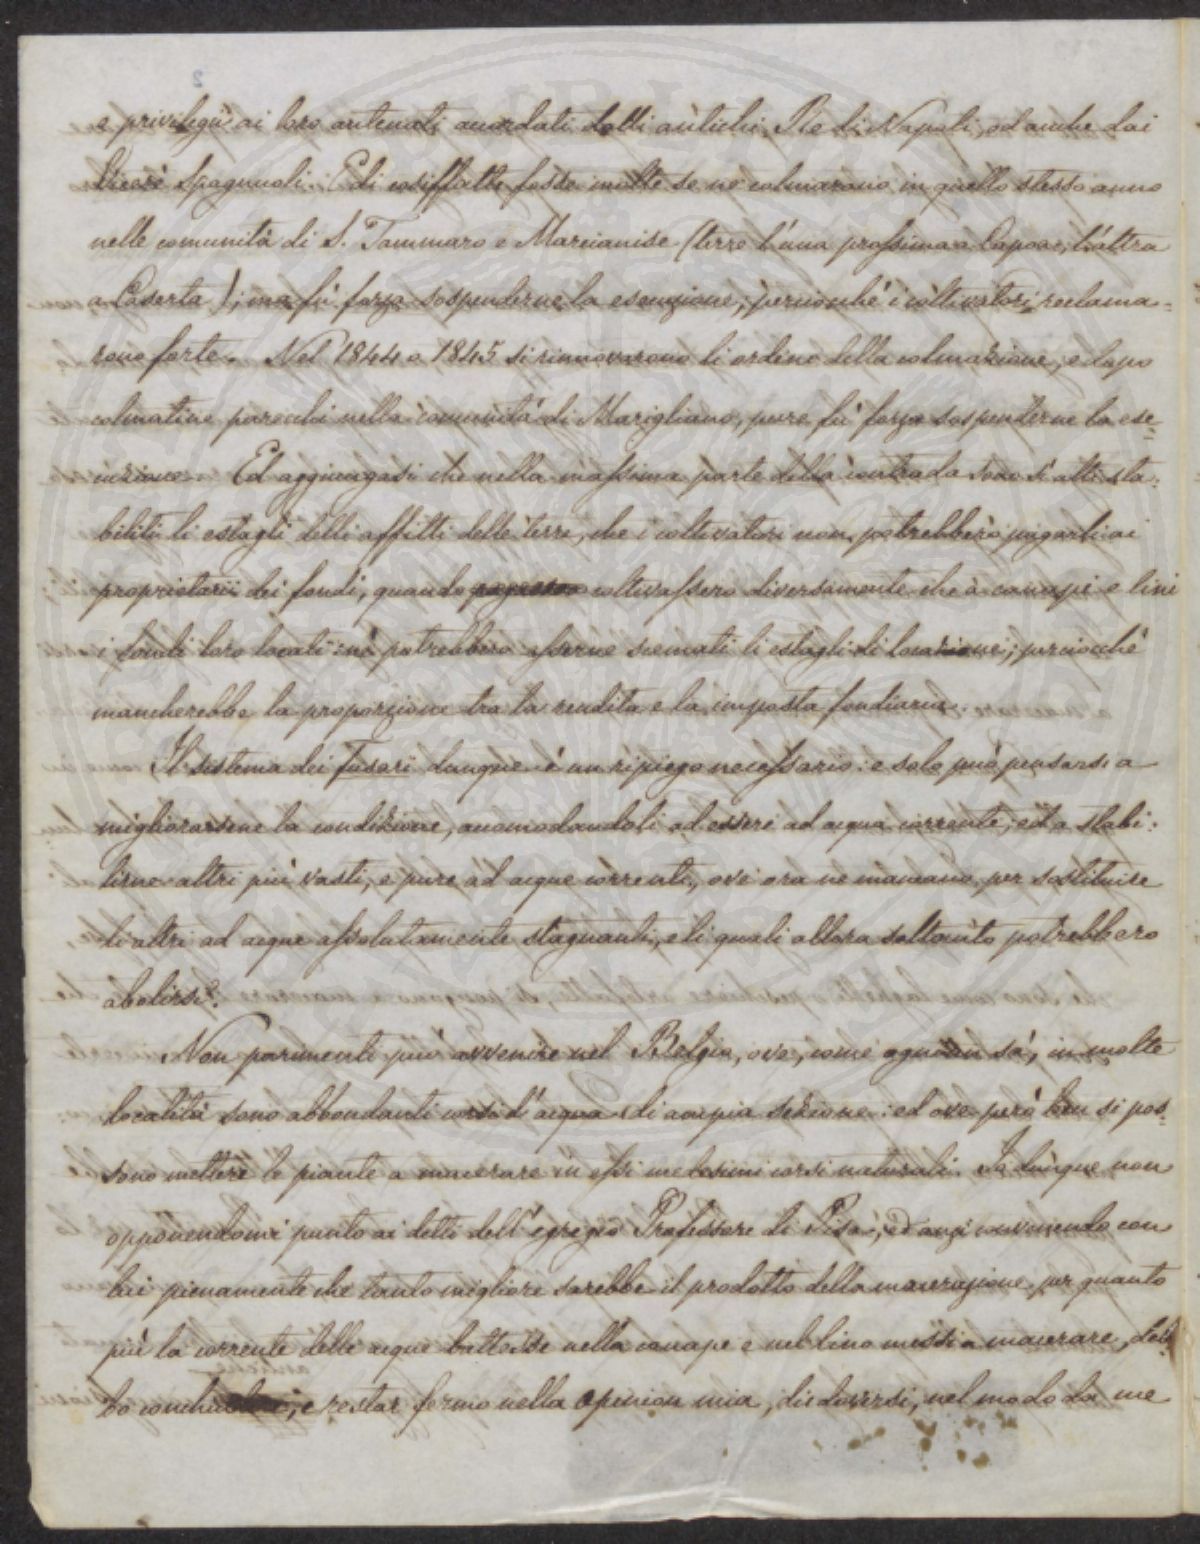 e privilegii ai loro antenati accordati dalli antichi Re di Napoli, od anche dai
Vicerè Spagnuoli. E di cosiffatte fosse molte se ne colmarono in quello stesso anno
nelle comunità di S. Tammaro e Marcianise (terre l'una prossima a Capoa, l'altra
a Caserta); ma fù forza sospenderne la esecuzione, perciocchè i coltivatori reclama-
rono forte. Nel 1844 o 1845 si rinnovarono li ordini della colmazione, e dopo
colmatine parecchi nella comunità di Marigliano, pure fù forza sospenderne la ese-
cuzione. Ed aggiungasi che nella massima parte della contrada sono sì alti sta-
biliti li estagli delli affitti delle terre, che i coltivatori non potrebbero pagarli ai
proprietarii dei fondi, quando coltivassero diversamente che à canapi e lini
i fondi loro locati: nè potrebbero esserne scemati li estagli di locazione; perciocchè
mancherebbe la proporzione tra la rendita e la imposta fondiaria.
Il sistema dei Fusari dunque è un ripiego necessario: e solo può pensarsi a
migliorarsene la condizione, accomodandoli ad essere ad acqua corrente, ed a stabi-
lirne altri più vasti, e pure ad acque correnti, ove ora ne mancano, per sostituire
li altri ad acque assolutamente stagnanti, e li quali allora soltanto potrebbero
abolirsi.
Non parimenti può avvenire nel Belgio, ove, come ognun sà, in molte
località sono abbondanti corsi d'acqua di ampia sezione: ed ove però ben si pos-
sono mettere le piante a macerare in essi medesimi corsi naturali. Io dunque non
opponendomi punto ai detti dell'egregio Professore di Pisa, ed anzi convenendo con
lui pienamente che tanto migliore sarebbe il prodotto della macerazione per quanto
più la corrente delle acque battesse nella canape e nel lino messi a macerare, deb-
bo e restar fermo nella opinion mia, di doversi, nel modo da me